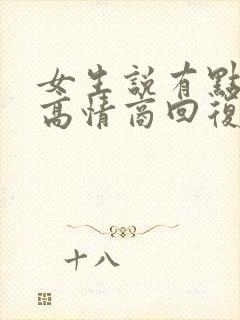 女生說有點
高情商回復
十八